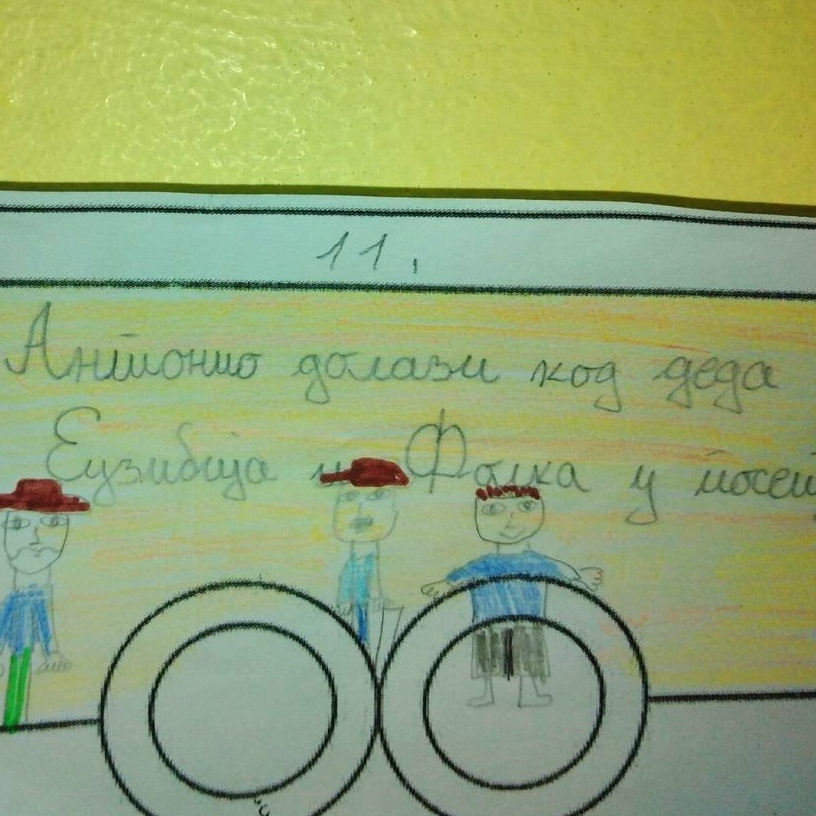 11.
Антонио долази код деда
Еузибија и Фолка у посету